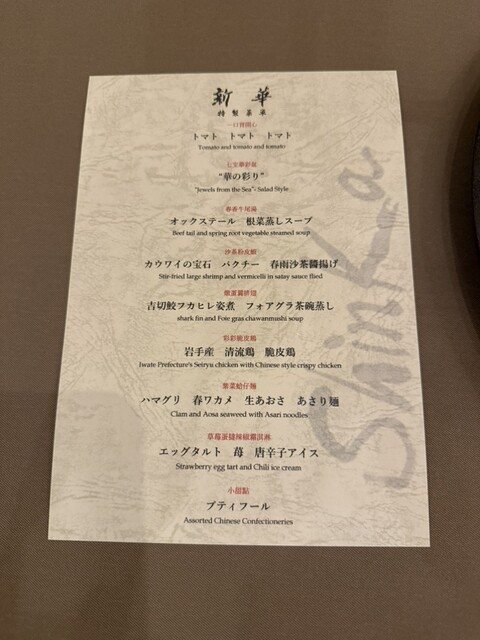 新華
特製菜単
一口胃開心
トマト　トマト　トマト
Tomato and tomato and tomato
七宝華彩盤
“華の彩り”
"Jewels from the Sea"- Salad Style
春香牛尾湯
オックステール　根菜蒸しスープ
Beef tail and spring root vegetable steamed soup
沙茶粉皮蝦
カウワイの宝石　パクチー　春雨沙茶醬揚げ
Stir-fried large shrimp and vermicelli in satay sauce flied
吉切鮫フカヒレ姿煮　フォアグラ茶碗蒸し
shark fin and Foie gras chawanmushi soup
彩彩脆皮鶏
岩手産　清流鶏　脆皮鶏
Iwate Prefecture's Seiryu chicken with Chinese style crispy chicken
紫菜蛤仔麺
ハマグリ　春ワカメ　生あおさ　あさり麺
Clam and Aosa seaweed with Asari noodles
草苺蛋撻辣椒霜淇淋
エッグタルト　苺　唐辛子アイス
Strawberry egg tart and Chili ice cream
小甜點
プティフール
Assorted Chinese Confectioneries
Shinka